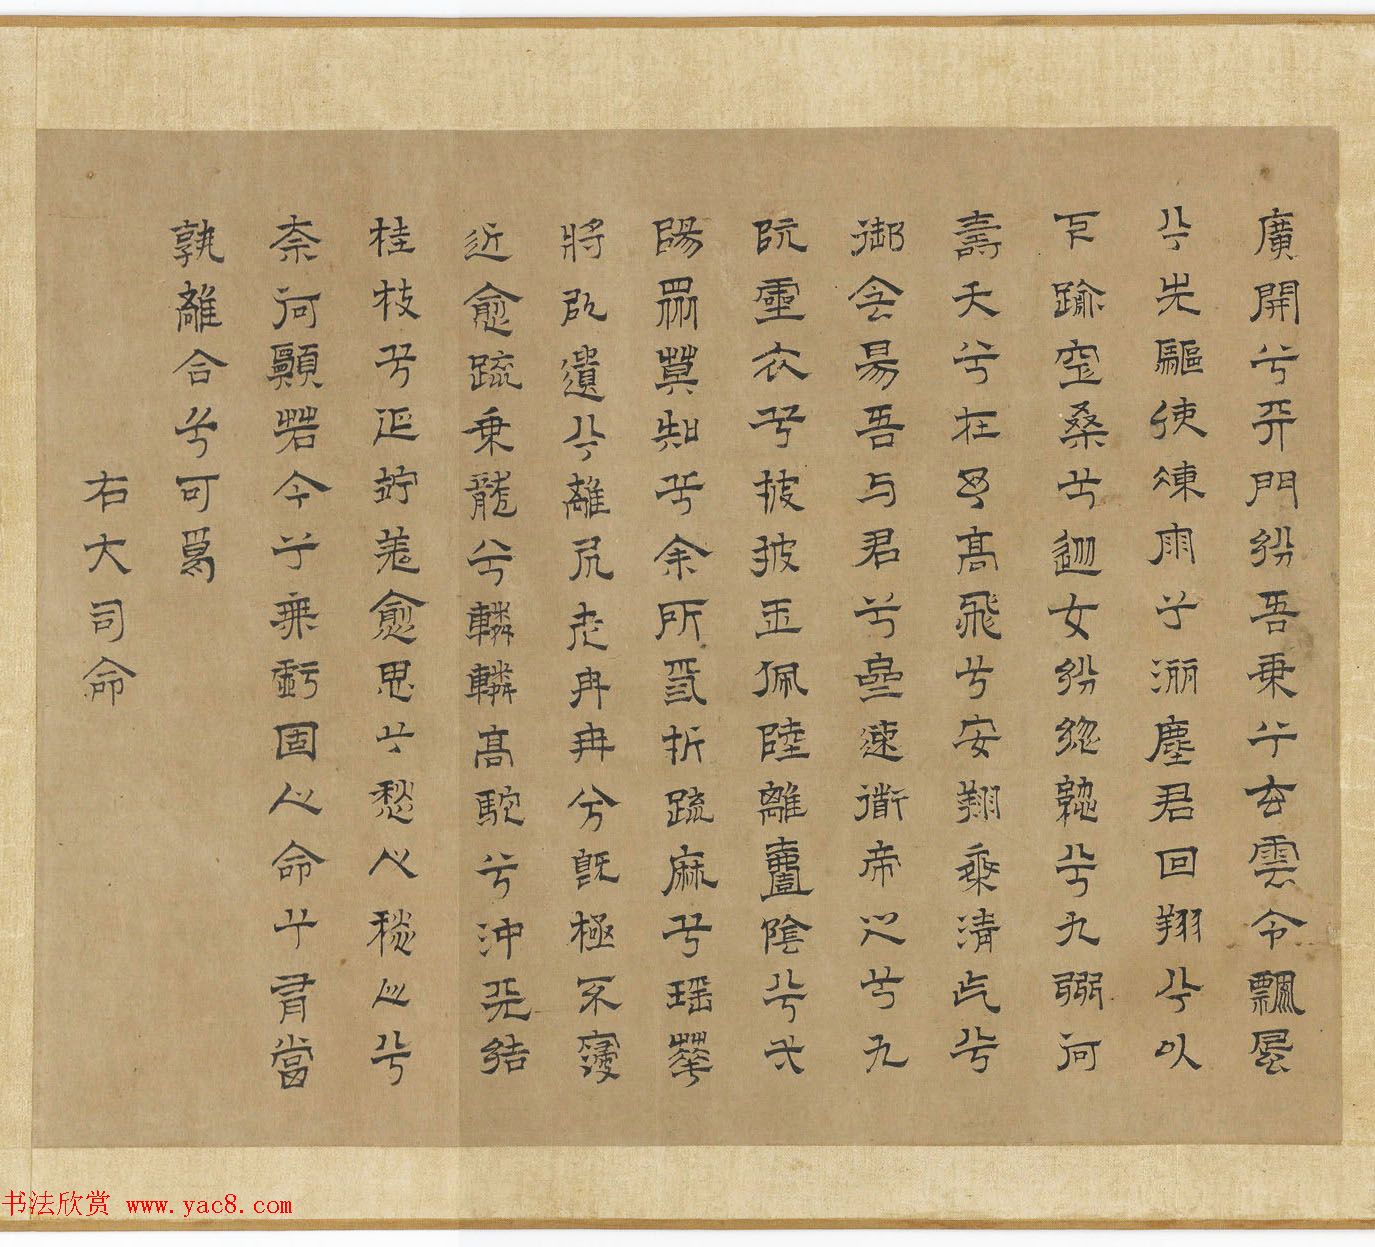 廣開兮天門紛吾乗兮玄雲令飄風
兮先驅使涷雨兮灑塵君回翔兮以
下踰空桑兮從女紛緫緫兮九州何
壽夭兮在予髙飛兮安翔乘清气兮
御侌昜吾与君兮齋速道帝之兮九
阬靈衣兮披披玉佩陸離壹陰兮弌
陽眾莫知兮余所爲折疏麻兮瑶華
將以遺兮離居老冉冉兮既極不寖
近愈疏乗龍兮轔轔髙駝兮沖天結
桂枝兮延竚羌愈思兮愁人愁人兮
柰何願若今兮無虧固人命兮有當
孰離合兮可爲
右大司命
书法欣赏 www.yac8.com